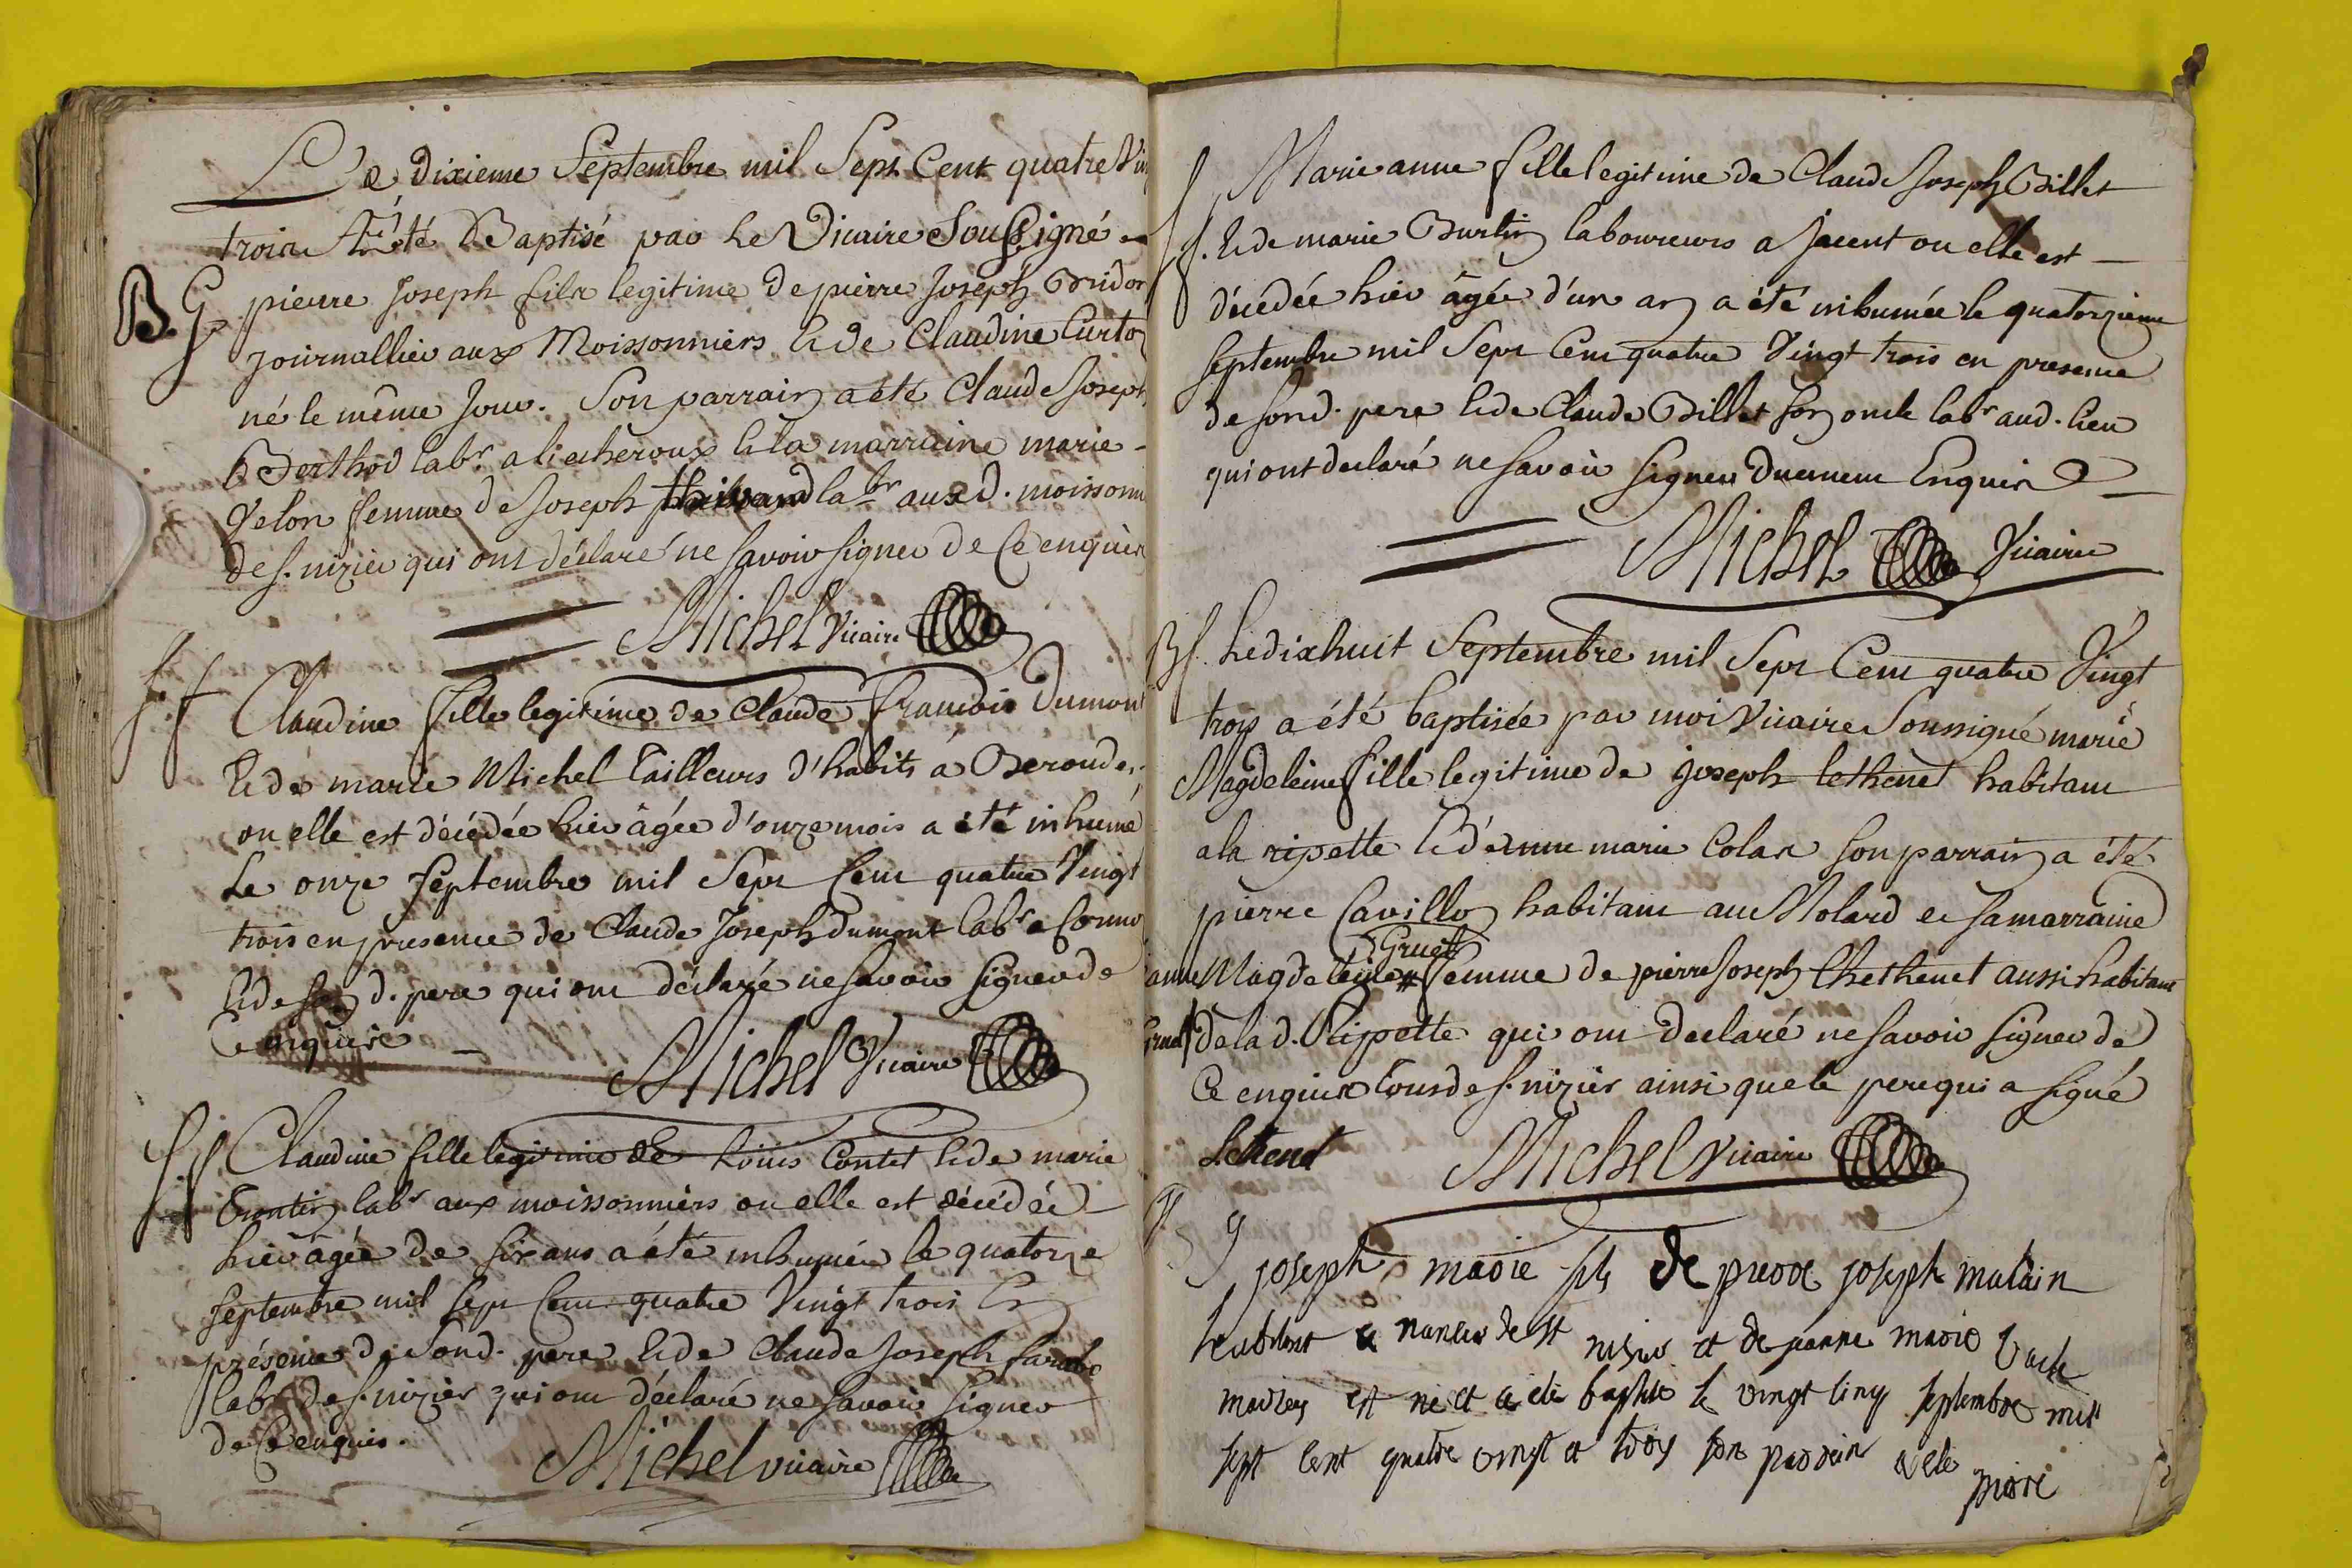 Le Dixieme Septembre mil Sept Cent quatre Vin
trois A été Baptisé par Le Vicaire Soussigné
B. G. pierre Joseph fils legitime de pierre Joseph Bridon
journallier aux Moissonniers & de Claudine Curto
né le même Jour. Son parrain a été Claude Joseph
Berthod labr a liecheroux & la marraine marie
Velon femme de Joseph thivand labr aux d. moissonn
de s. nizier qui ont déclaré ne savoir signer de Ce enquis
Michel Vicaire
S. f Claudine fille legitime de Claude francois Dumont
& de marie Michel Tailleurs d'habits à Beroude,
ou elle est décédée hier âgée d'onze mois a été inhumé
Le onze Septembre mil Sept Cent quatre Vingt
trois en presence de Claude Joseph dumont labr a Cormo
& de son d. pere qui ont déclaré ne savoir signer de
Ce enquis
Michel Vicaire
S. f Claudine fille legitime de Louis Contet & de marie
labr aux moissonniers ou elle est décédée
hier âgée de six ans a été inhumée le quatorze
Septembre mil Sept Cent quatre Vingt trois En
présence de Son d. pere & de Claude Joseph
labr de s. nizier qui ont déclaré ne savoir signer
de Ce enquis.
Michel vicaire
S f. Marie anne fille legitime de Claude Joseph Billet
& de marie Burtin laboureurs a Jacent ou elle est
décédée hier âgée d'un an a été inhumée le quatorzieme
Septembre mil Sept Cent quatre Vingt trois en presence
de son d. pere & de Claude Billet son oncle labr aud. lieu
qui ont declaré ne savoir signer Duement Enquis
Michel Vicaire
B f. Le dix huit Septembre mil Sept Cent quatre Vingt
trois a été baptisée par moi Vicaire Soussigné marie
Magdeleine fille legitime de joseph lethenet habitant
a la ripette & d'anne marie Colas son parrain a été
pierre Cavillon habitant au Molard et sa marraine
Gruet
anne Magdeleine # femme de pierre Joseph Chethenet aussi habitant
Gruet de la d. Ripette qui ont declaré ne savoir signer de
Ce enquis tous de s. nizier ainsi que le pere qui a signé
Lettenet Michel Vicaire
g joseph marie fils de pierre joseph mulain
habitant a de st nizier et de jeanne marie
est né et a été baptisé le vingt cinq septembre mil
sept cent quatre vingt et trois son parrain a été pierre